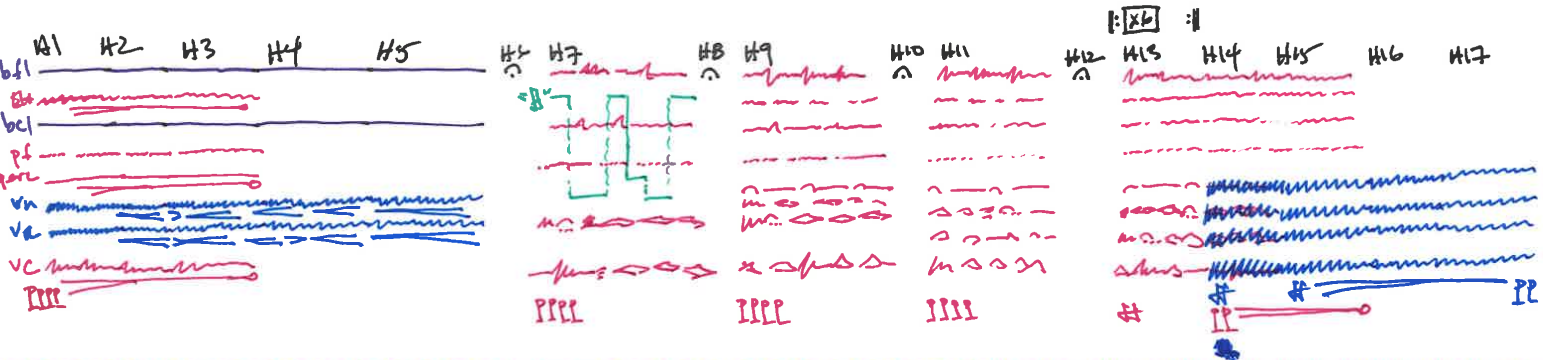 |: x6 :|
H1 H2 H3 H4 H5 H6 H7 H8 H9 H10 H11 H12 H13 H14 H15 H16 H17
bfl
bcl
pf
perc
vn
va
vc
pppp pppp pppp pppp ff pp
ff ff pp